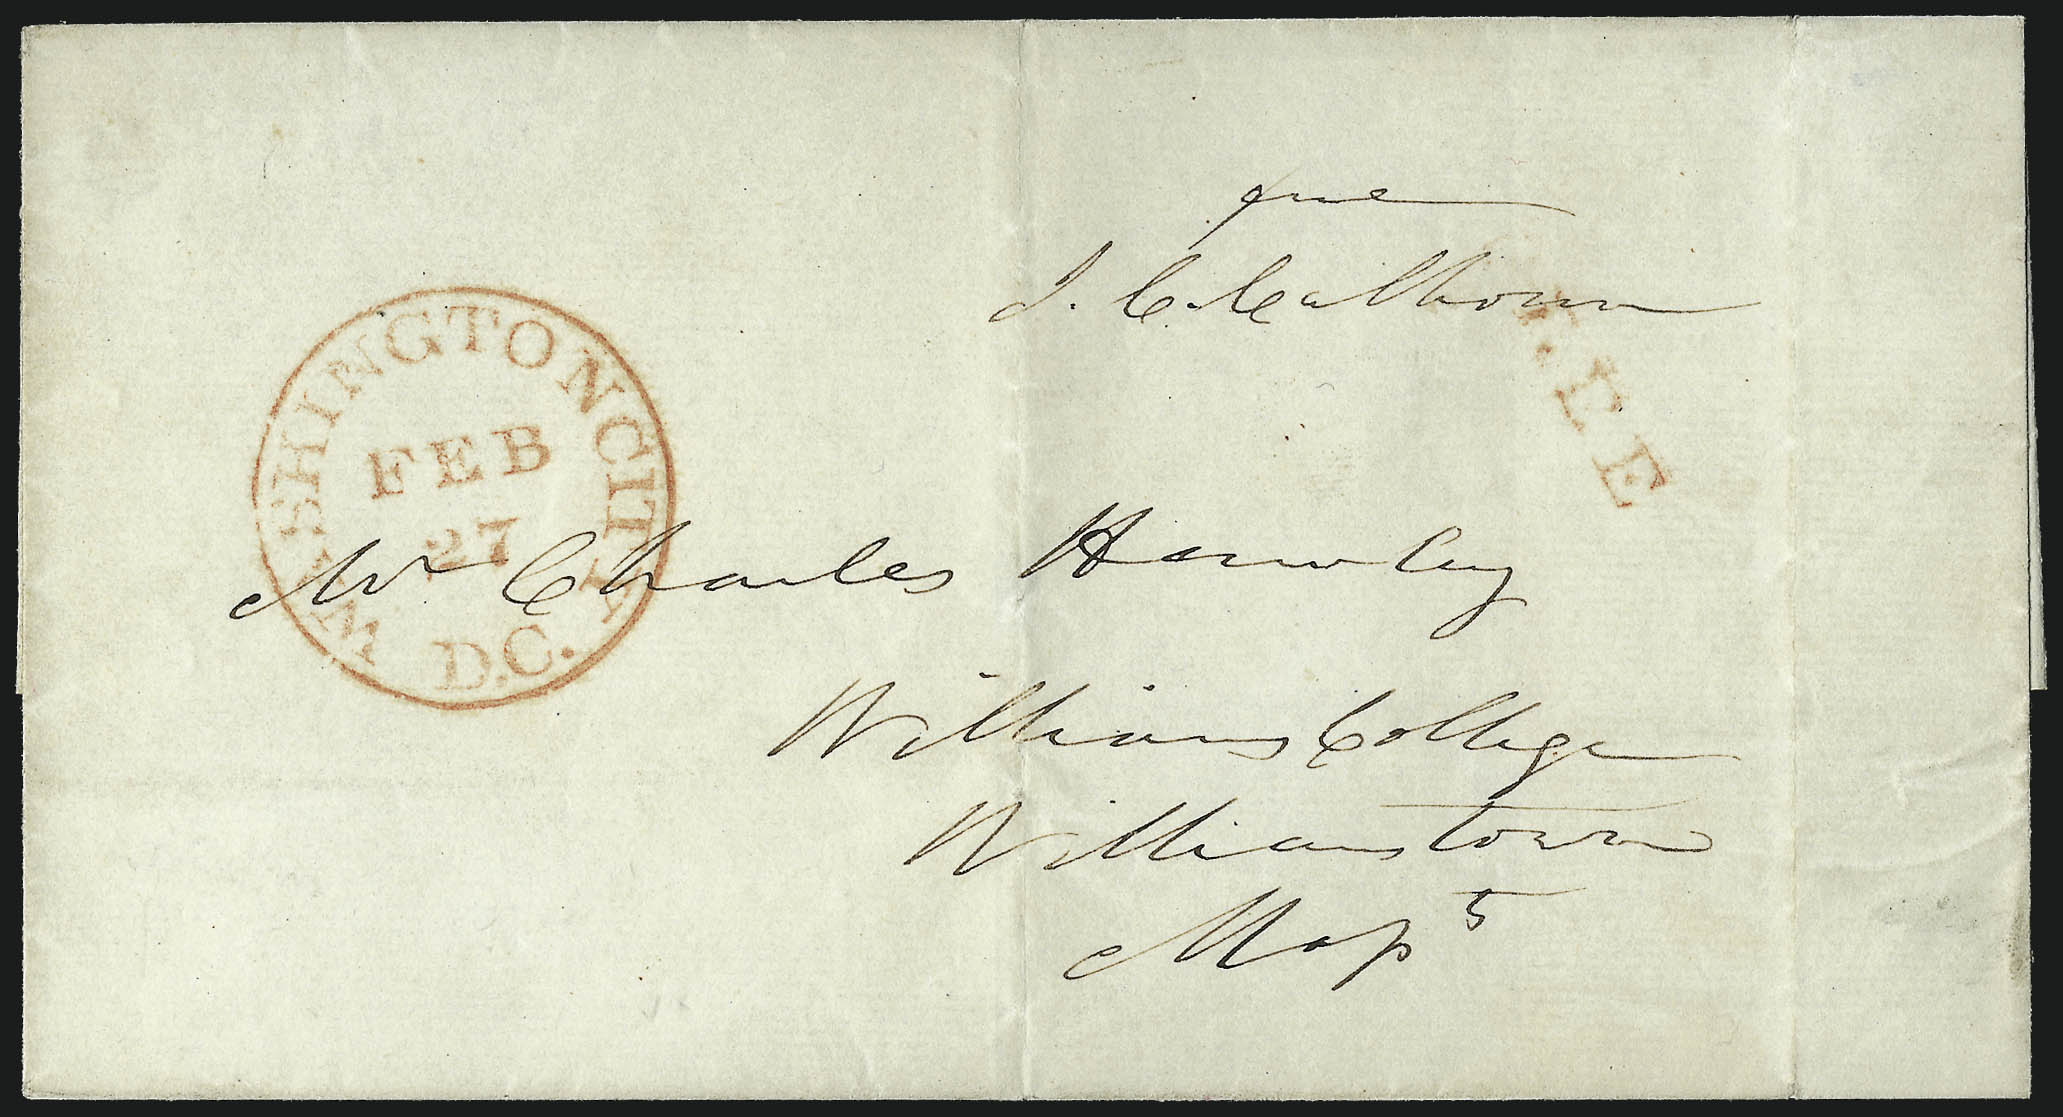 free
J. C. Calhoun
FREE
WASHINGTON CITY
FEB
27
D.C.
Mr Charles Hawley
Williams College
Williamstown
Mass
5